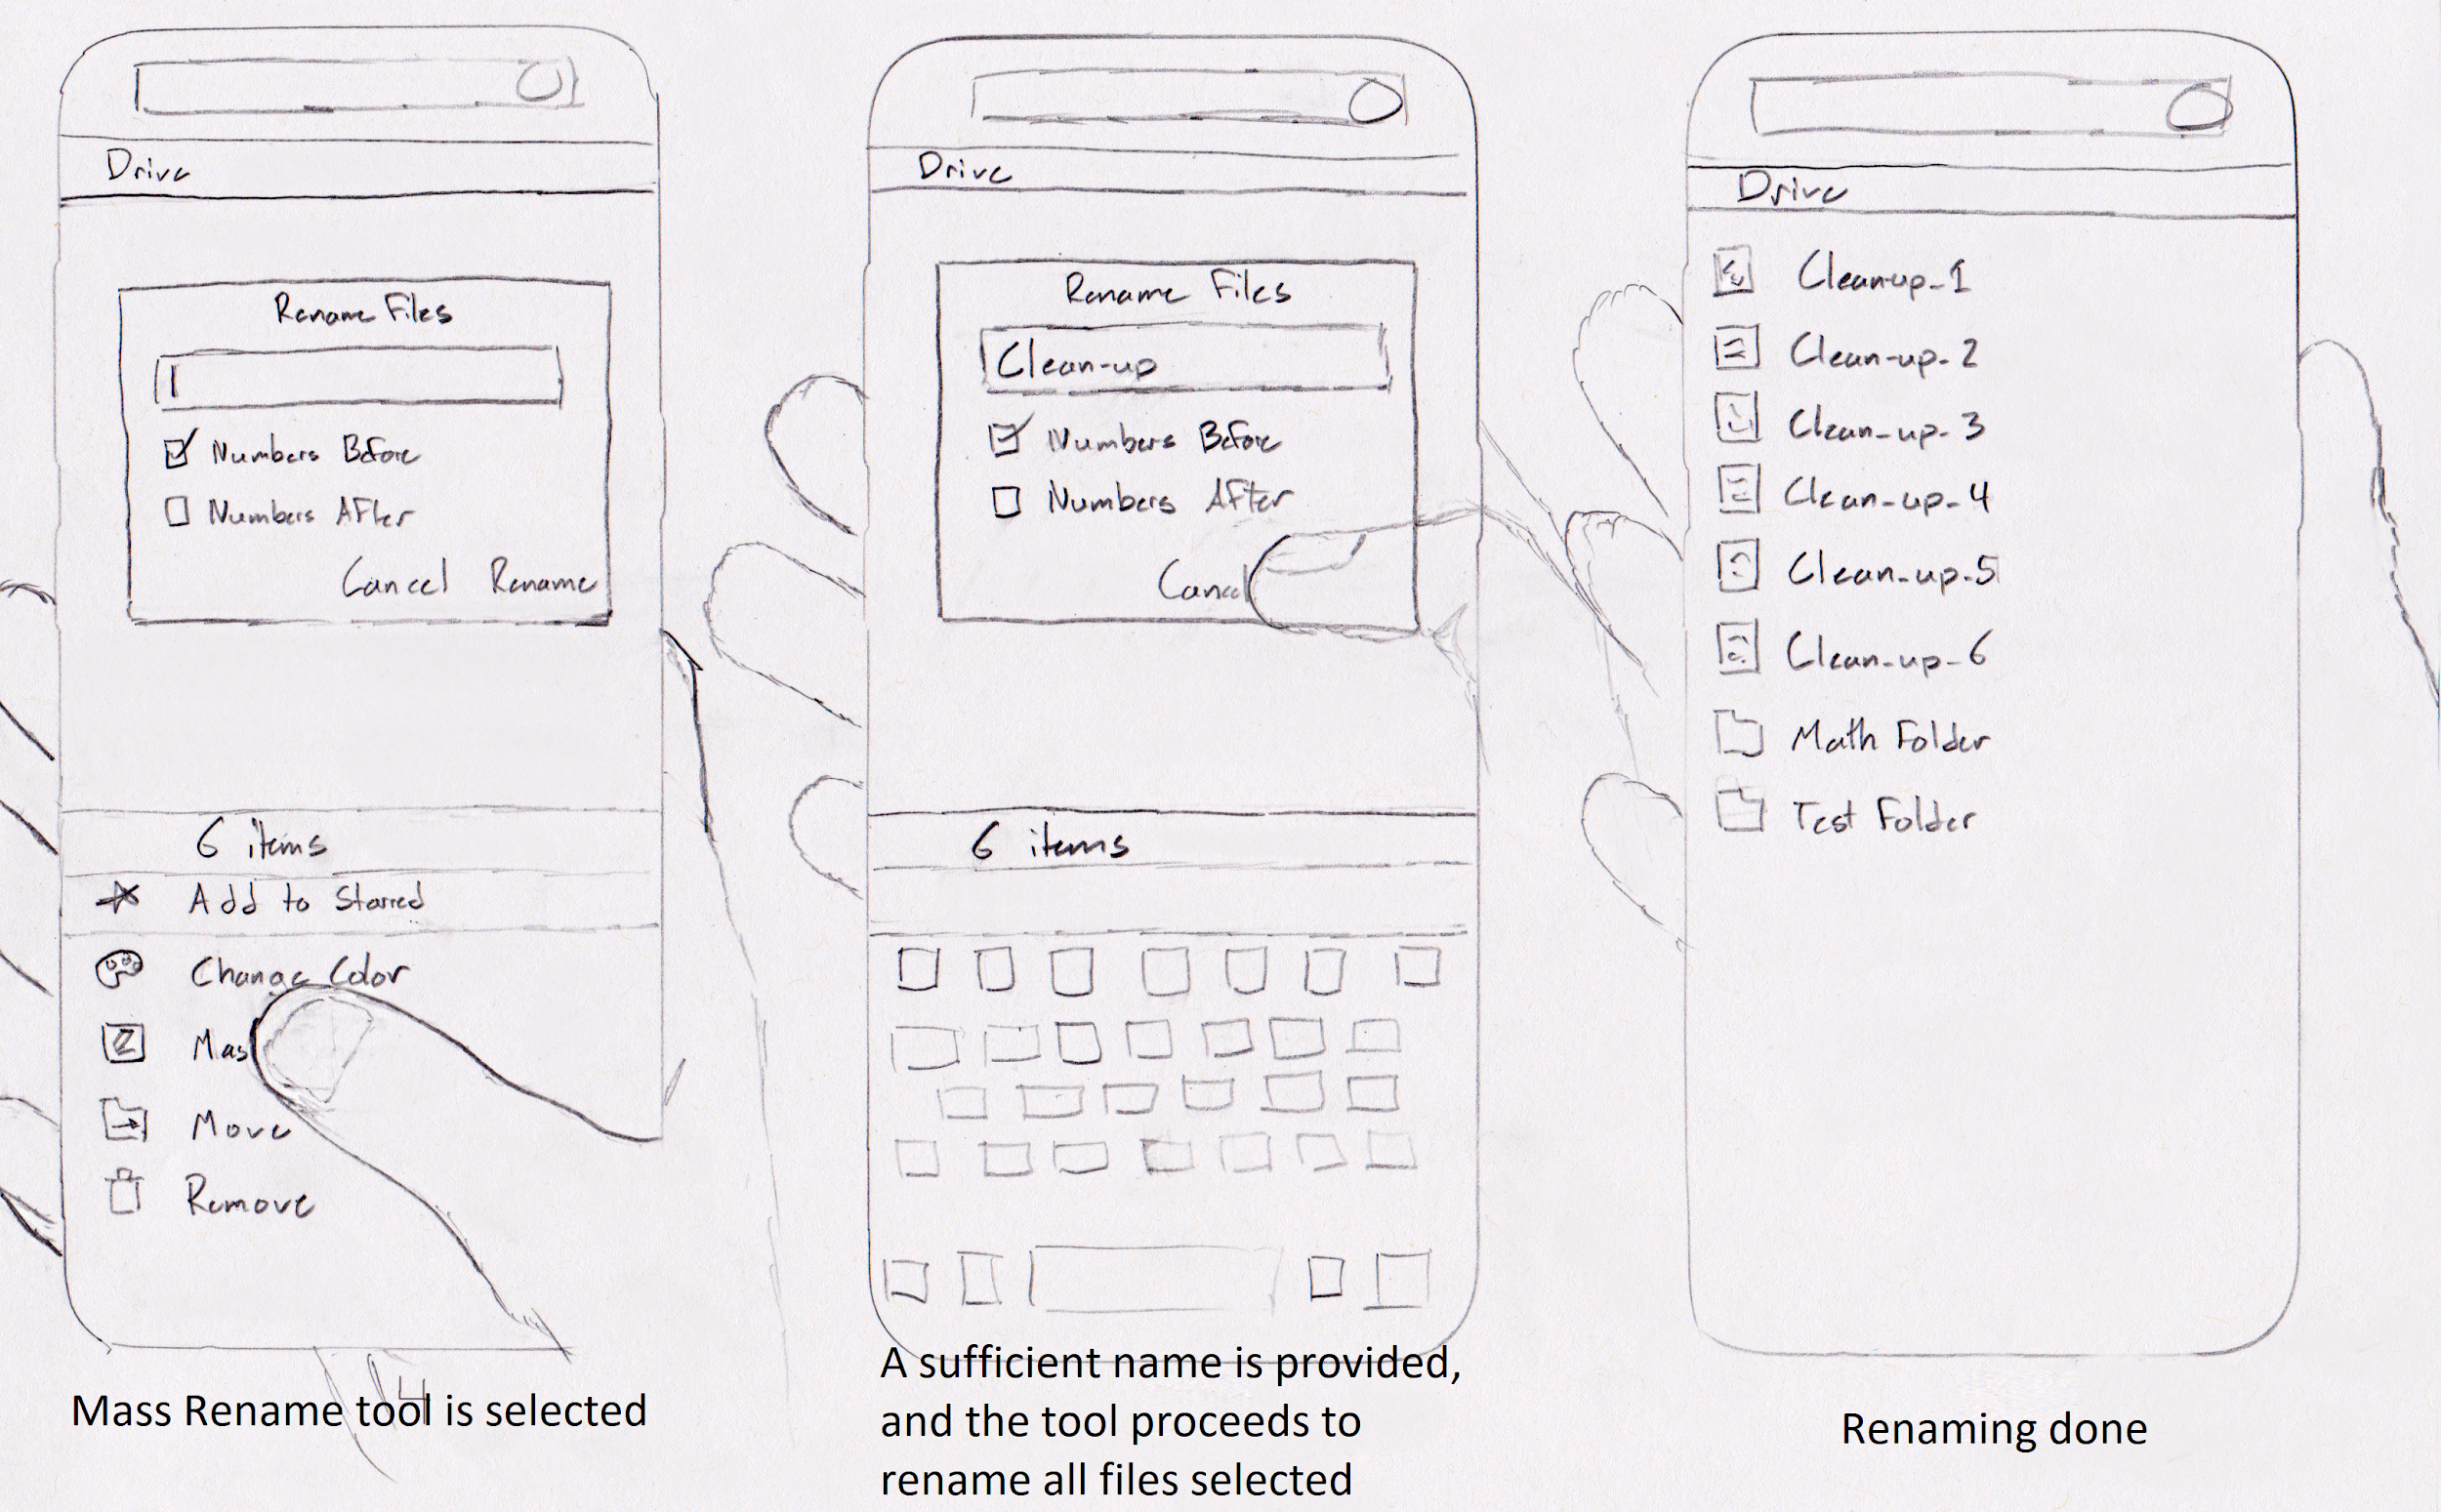 Drive
Rename Files
Numbers Before
Numbers After
Cancel Rename
6 items
Add to Starred
Change Color
Mas
Move
Remove
Mass Rename tool is selected
Drive
Rename Files
Clean-up
Numbers Before
Numbers After
Cancel
6 items
A sufficient name is provided,
and the tool proceeds to
rename all files selected
Drive
Clean-up_1
Clean-up-2
Clean-up-3
Clean-up-4
Clean-up-5
Clean-up-6
Math Folder
Test Folder
Renaming done